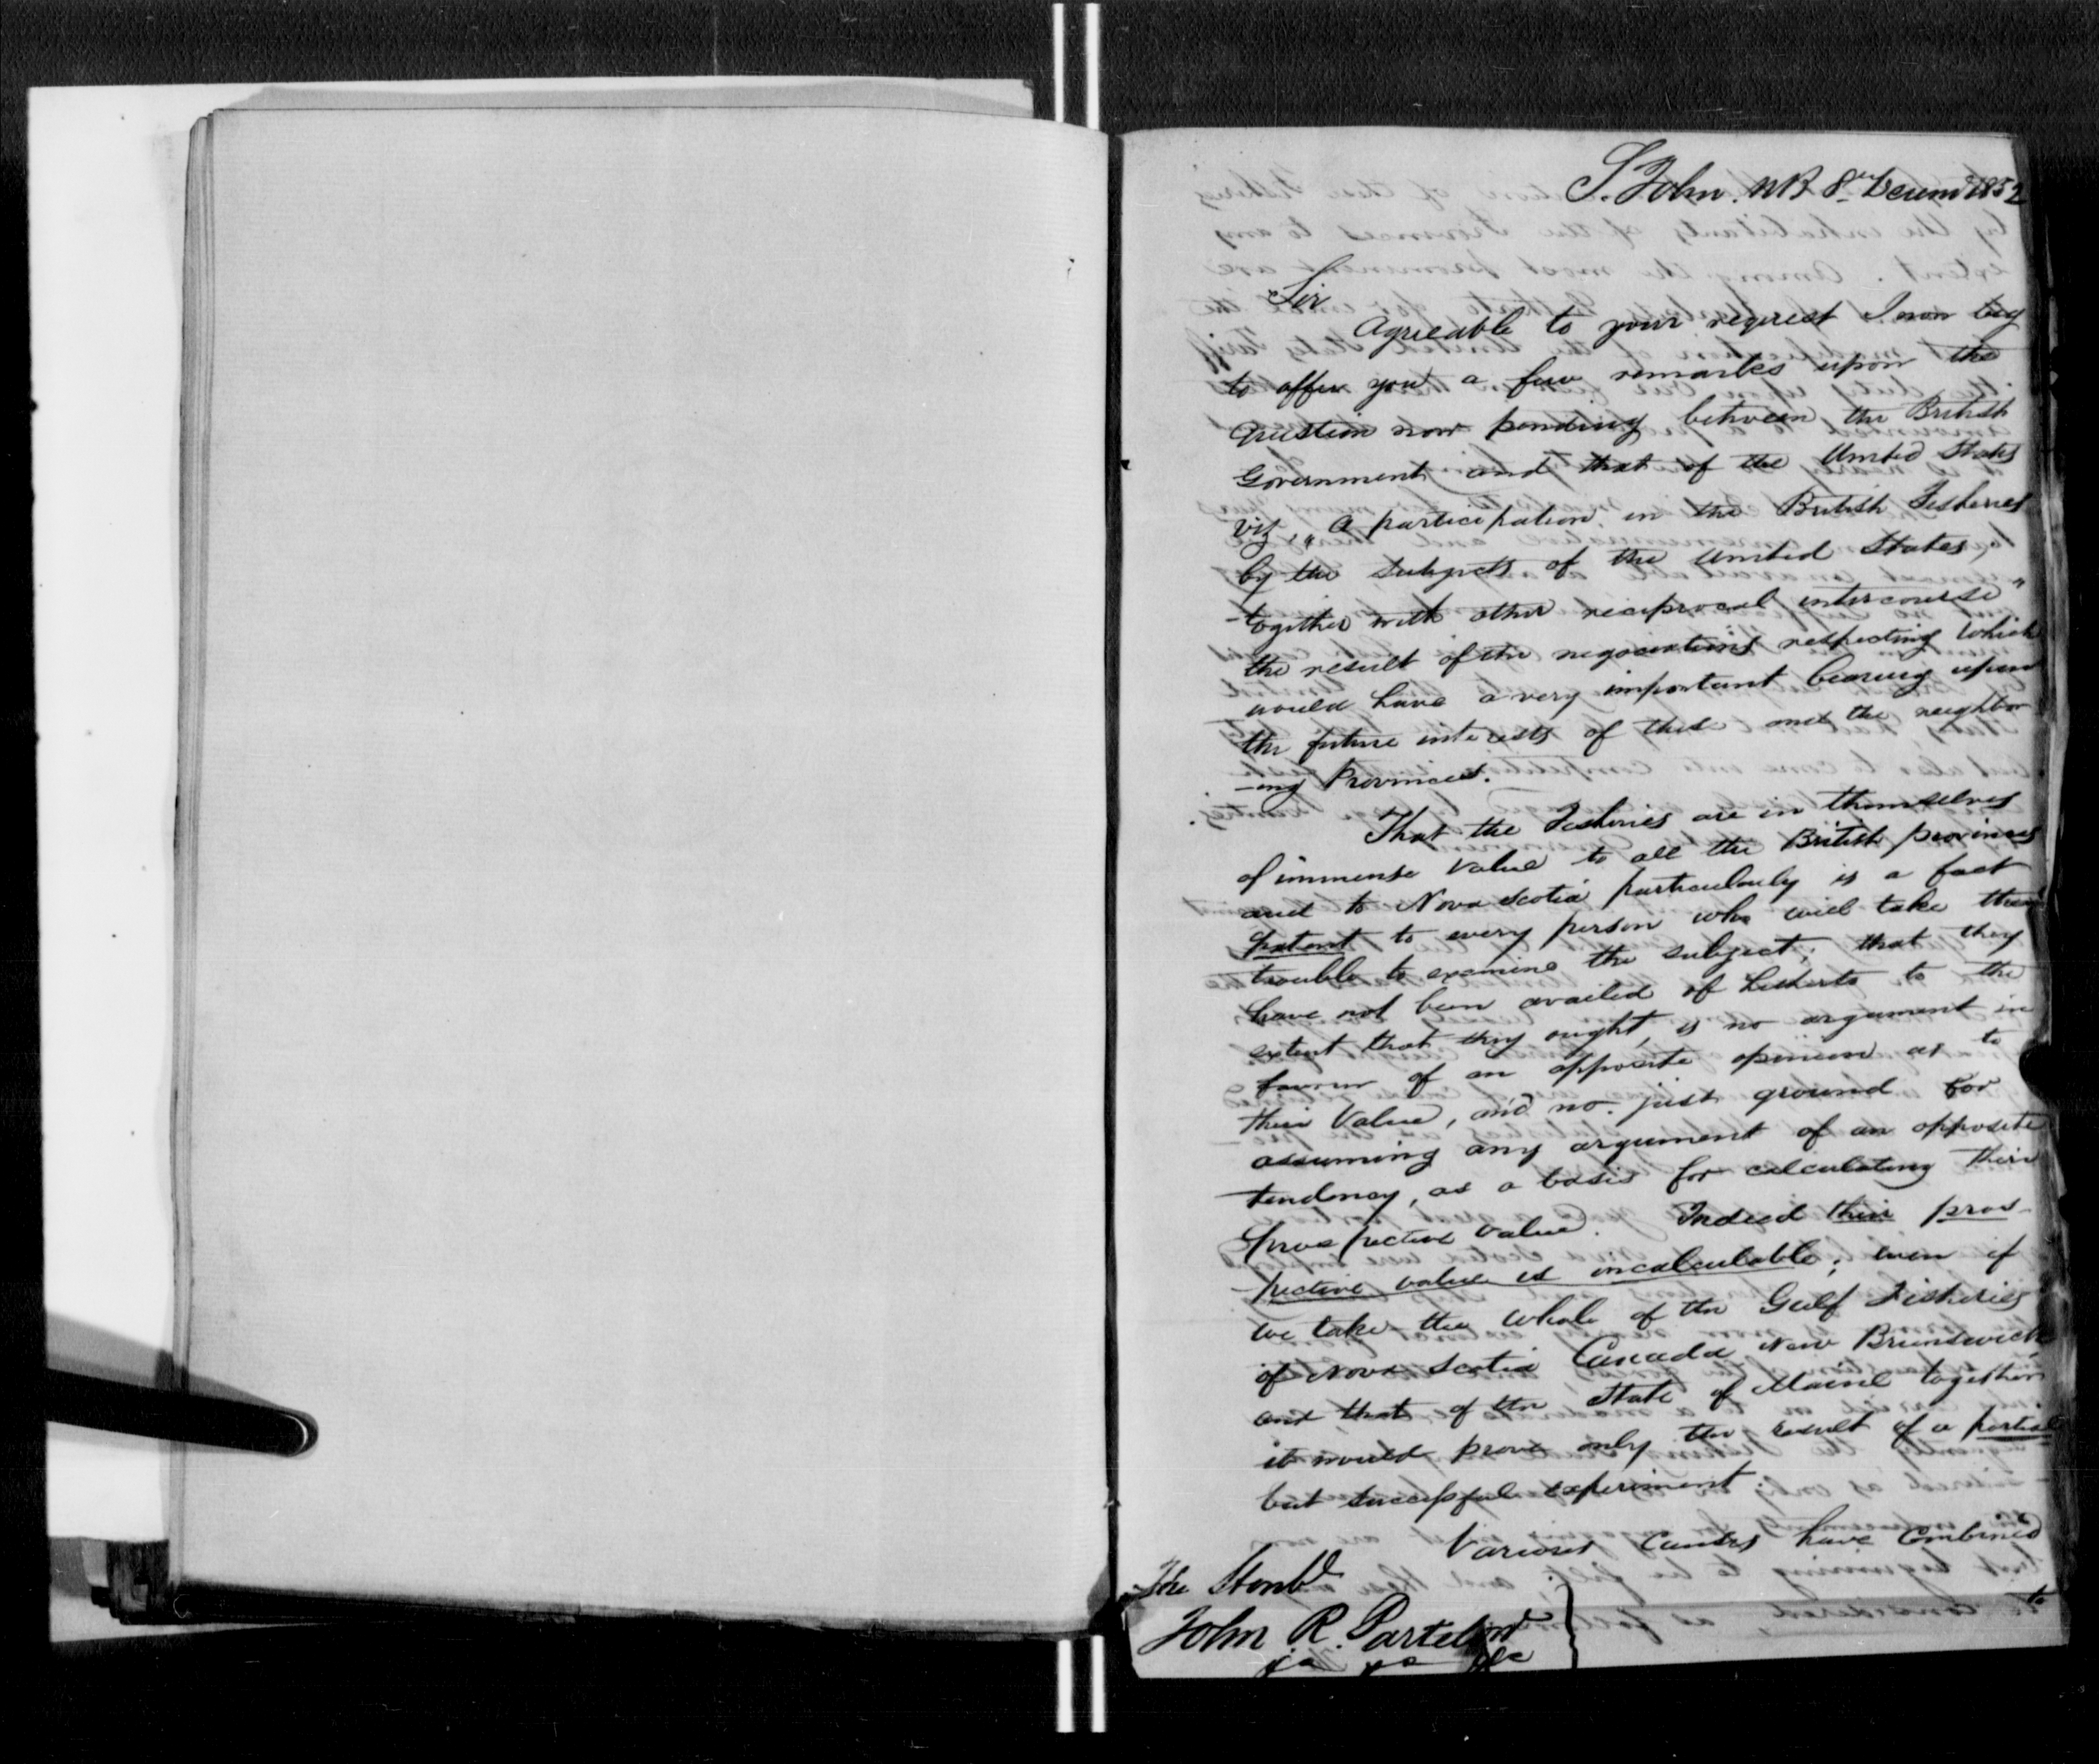 St. John. NB 8th Decem 1852
Sir
Agreable to your request I now beg
to offer you a few remarks upon the
Question now pending between the British
Government and that of the United States
viz, "A participation in the British Fisheries
by the Subjects of the United States,
together with other reciprocal intercourse"
the result of the negociations respecting which
would have a very important bearing upon
the future interests of this and the neighbor
-ing Provinces.
That the Fisheries are in themselves
of immense Value to all the British provinces
and to Nova Scotia particularly is a fact
patent to every person who will take the
trouble to examine the subject; that they
have not been availed of hitherto to the
extent that they ought, is no argument in
favour of an opposite opinion as to
their Value, and no just ground for
assuming any argument of an opposite
tendency, as a basis for calculating their
prospective value. Indeed their pros-
pective value is incalculable; even if
we take the whole of the Gulf Fisheries
of Nova Scotia Canada New Brunswick
and that of the State of Maine together
it would prove only the result of a partial
but successful experiment.
Various Causes have combined
to
The Honbl
John R. Partelow
&c &c &c